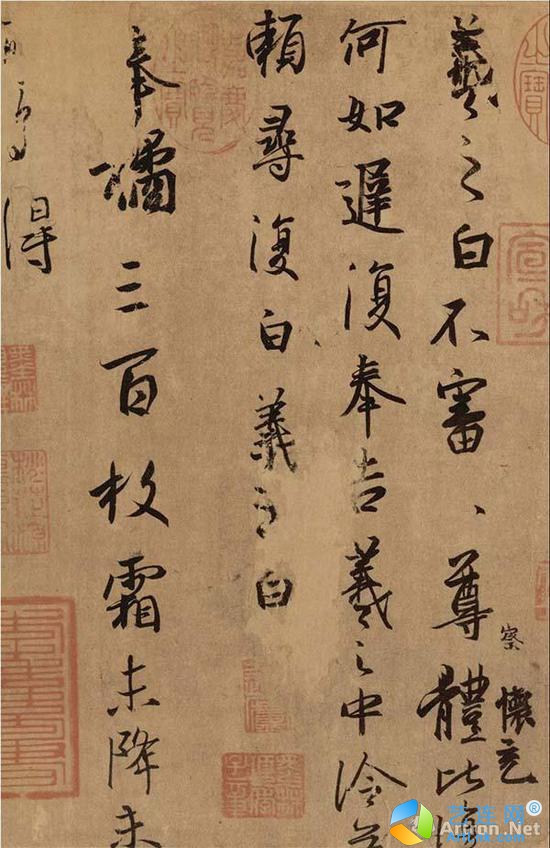 羲之白不審、尊體比
察
懷充
何如遲復奉告羲之中冷無
賴尋復白羲之白
奉橘三百枚霜未降未
可多得
Artron.Net